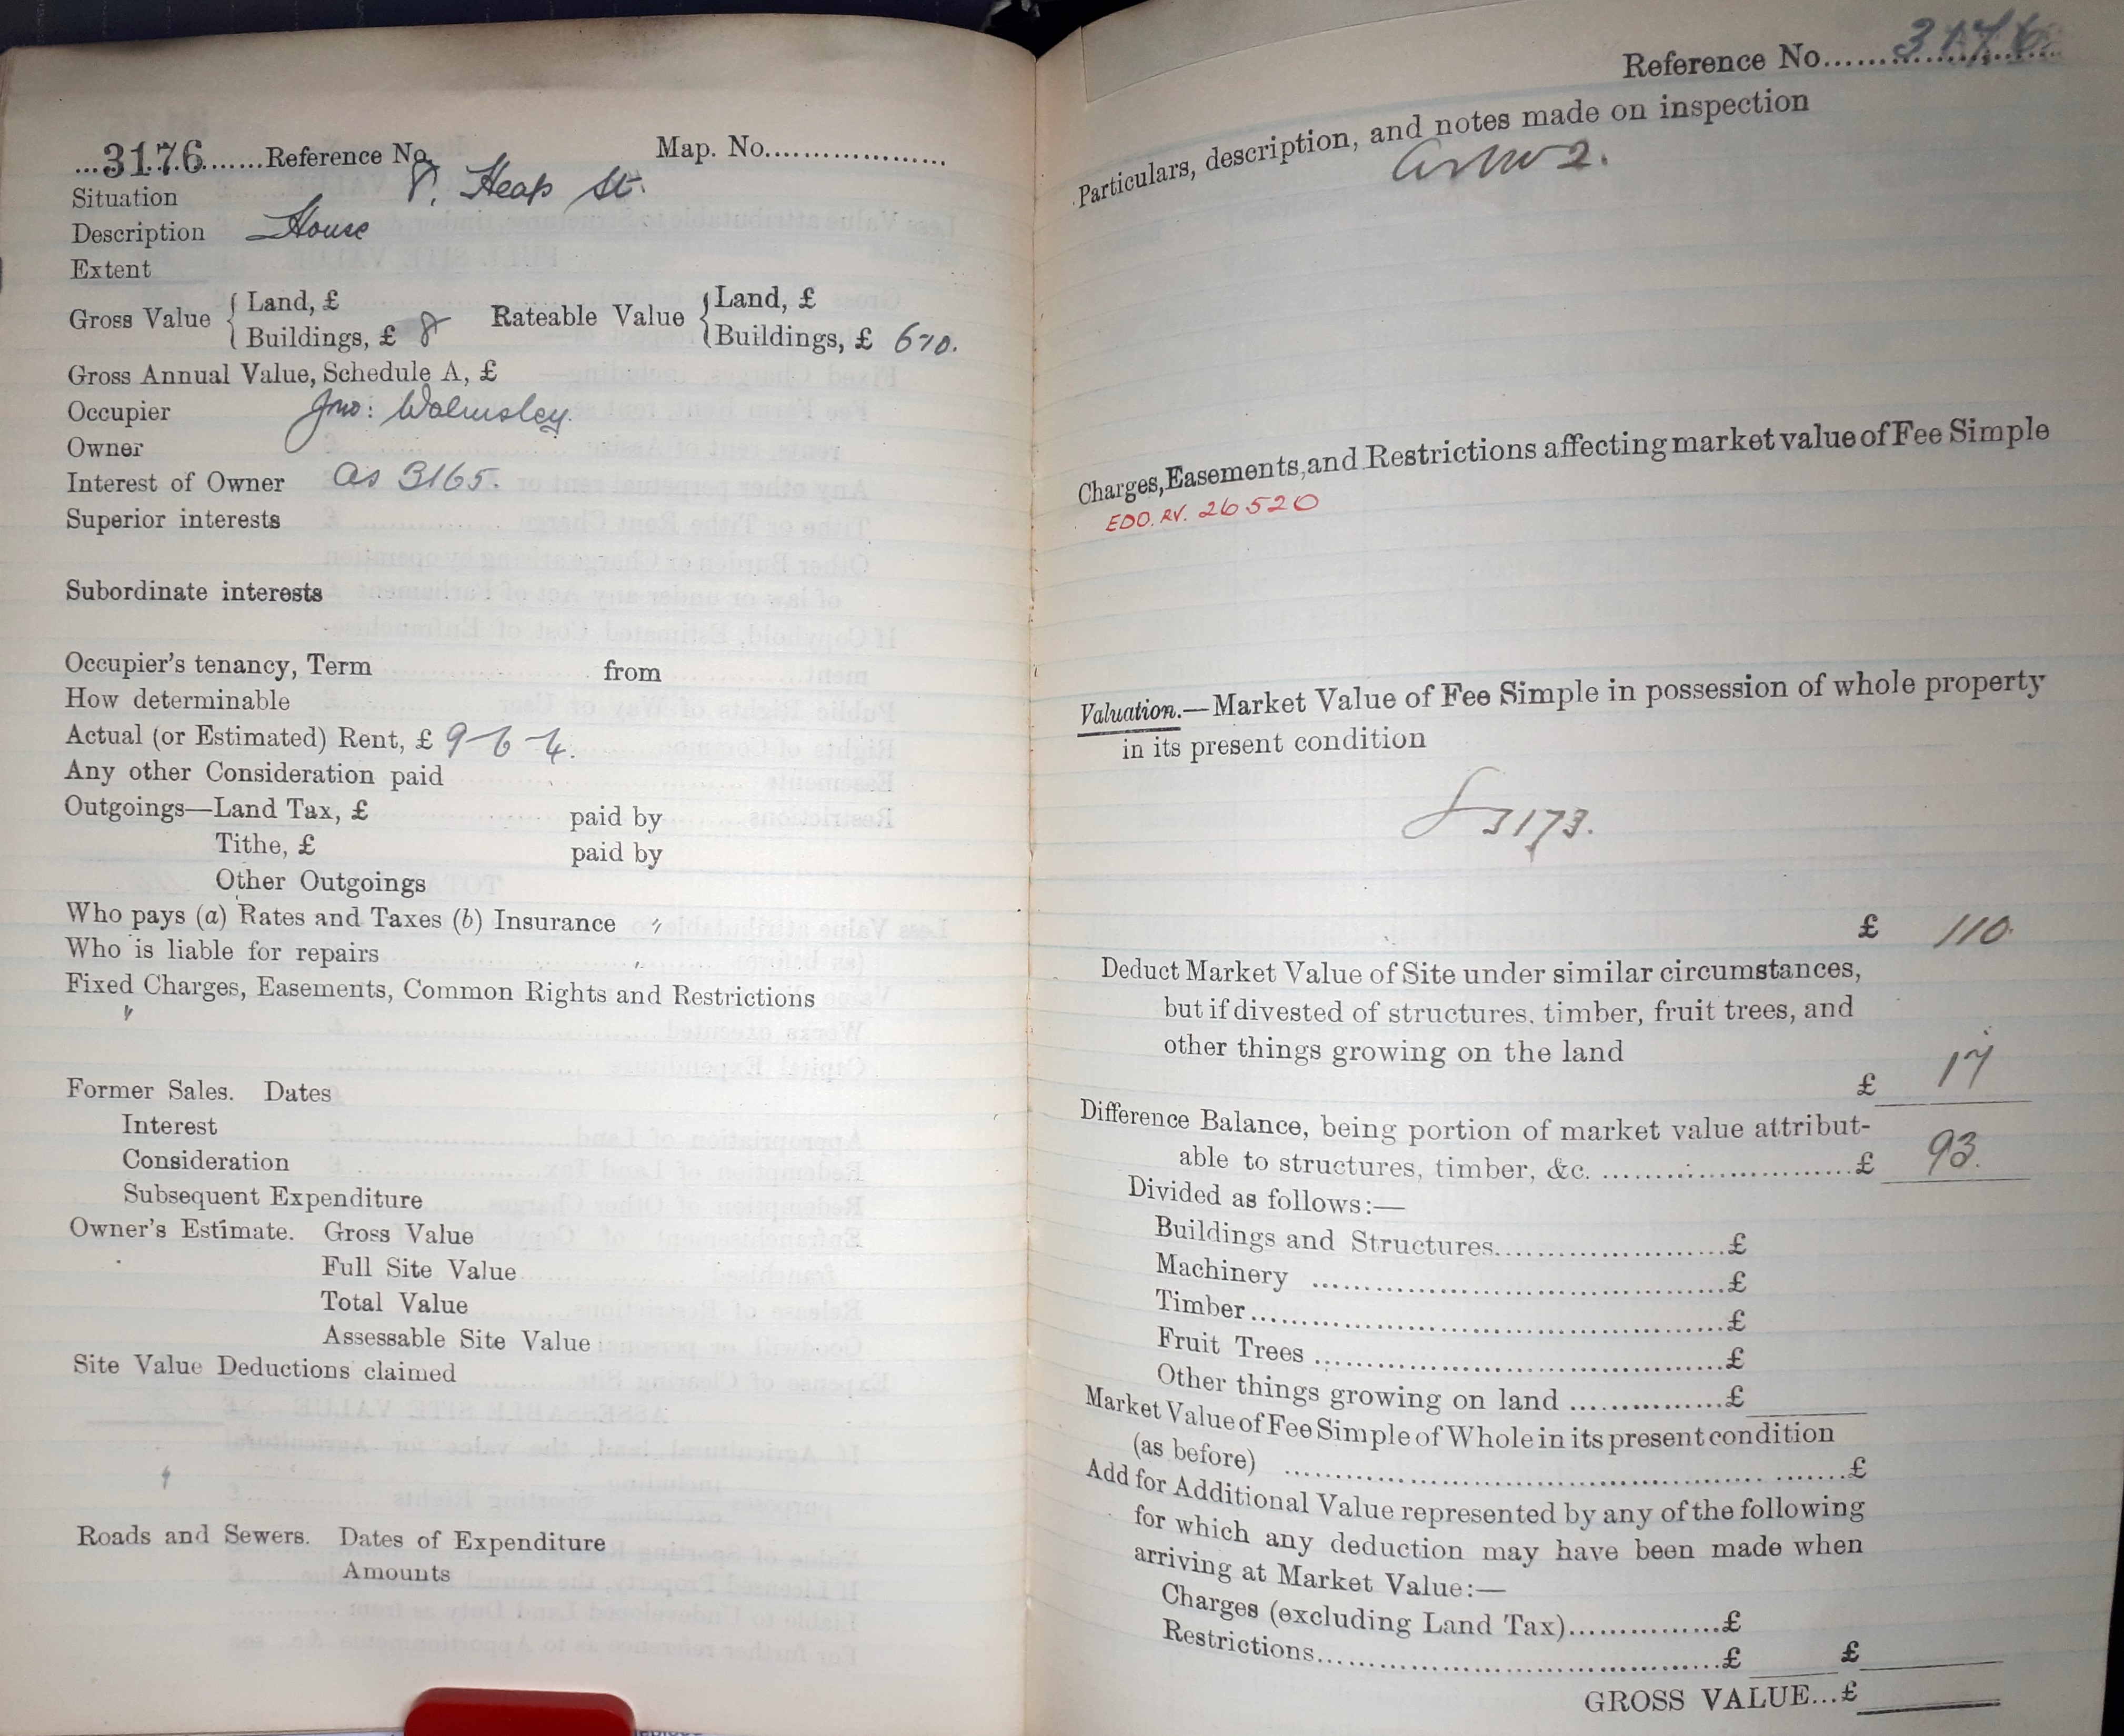 ...3176.......Reference No. Map. No...................
Situation 8, Heap St.
Description House
Extent
Gross Value { Land, £ Rateable Value { Land, £
Buildings, £ 8 Buildings, £ 6
Gross Annual Value, Schedule A, £
Occupier Jno: Walmsley.
Owner
Interest of Owner as 3165.
Superior interests
Subordinate interests
Occupier's tenancy, Term from
How determinable
Actual (or Estimated) Rent, £ 9-6-4.
Any other Consideration paid
Outgoings—Land Tax, £ paid by
Tithe, £ paid by
Other Outgoings
Who pays (a) Rates and Taxes (b) Insurance "
Who is liable for repairs "
Fixed Charges, Easements, Common Rights and Restrictions
"
Former Sales. Dates
Interest
Consideration
Subsequent Expenditure
Owner's Estimate. Gross Value
Full Site Value
Total Value
Assessable Site Value
Site Value Deductions claimed
Roads and Sewers. Dates of Expenditure
Amounts
Reference No......3176......
Particulars, description, and notes made on inspection
2.
Charges, Easements, and Restrictions affecting market value of Fee Simple
EDO. RV. 26520
Valuation.—Market Value of Fee Simple in possession of whole property
in its present condition
3173.
£ 110.
Deduct Market Value of Site under similar circumstances,
but if divested of structures. timber, fruit trees, and
other things growing on the land
£ 17
Difference Balance, being portion of market value attribut-
able to structures, timber, &c. ........................£ 93.
Divided as follows:—
Buildings and Structures......................£
Machinery ........................................£
Timber..............................................£
Fruit Trees ........................................£
Other things growing on land ...............£
Market Value of Fee Simple of Whole in its present condition
(as before) ..................................................£
Add for Additional Value represented by any of the following
for which any deduction may have been made when
arriving at Market Value:—
Charges (excluding Land Tax)...............£
Restrictions.......................................£ £
GROSS VALUE...£